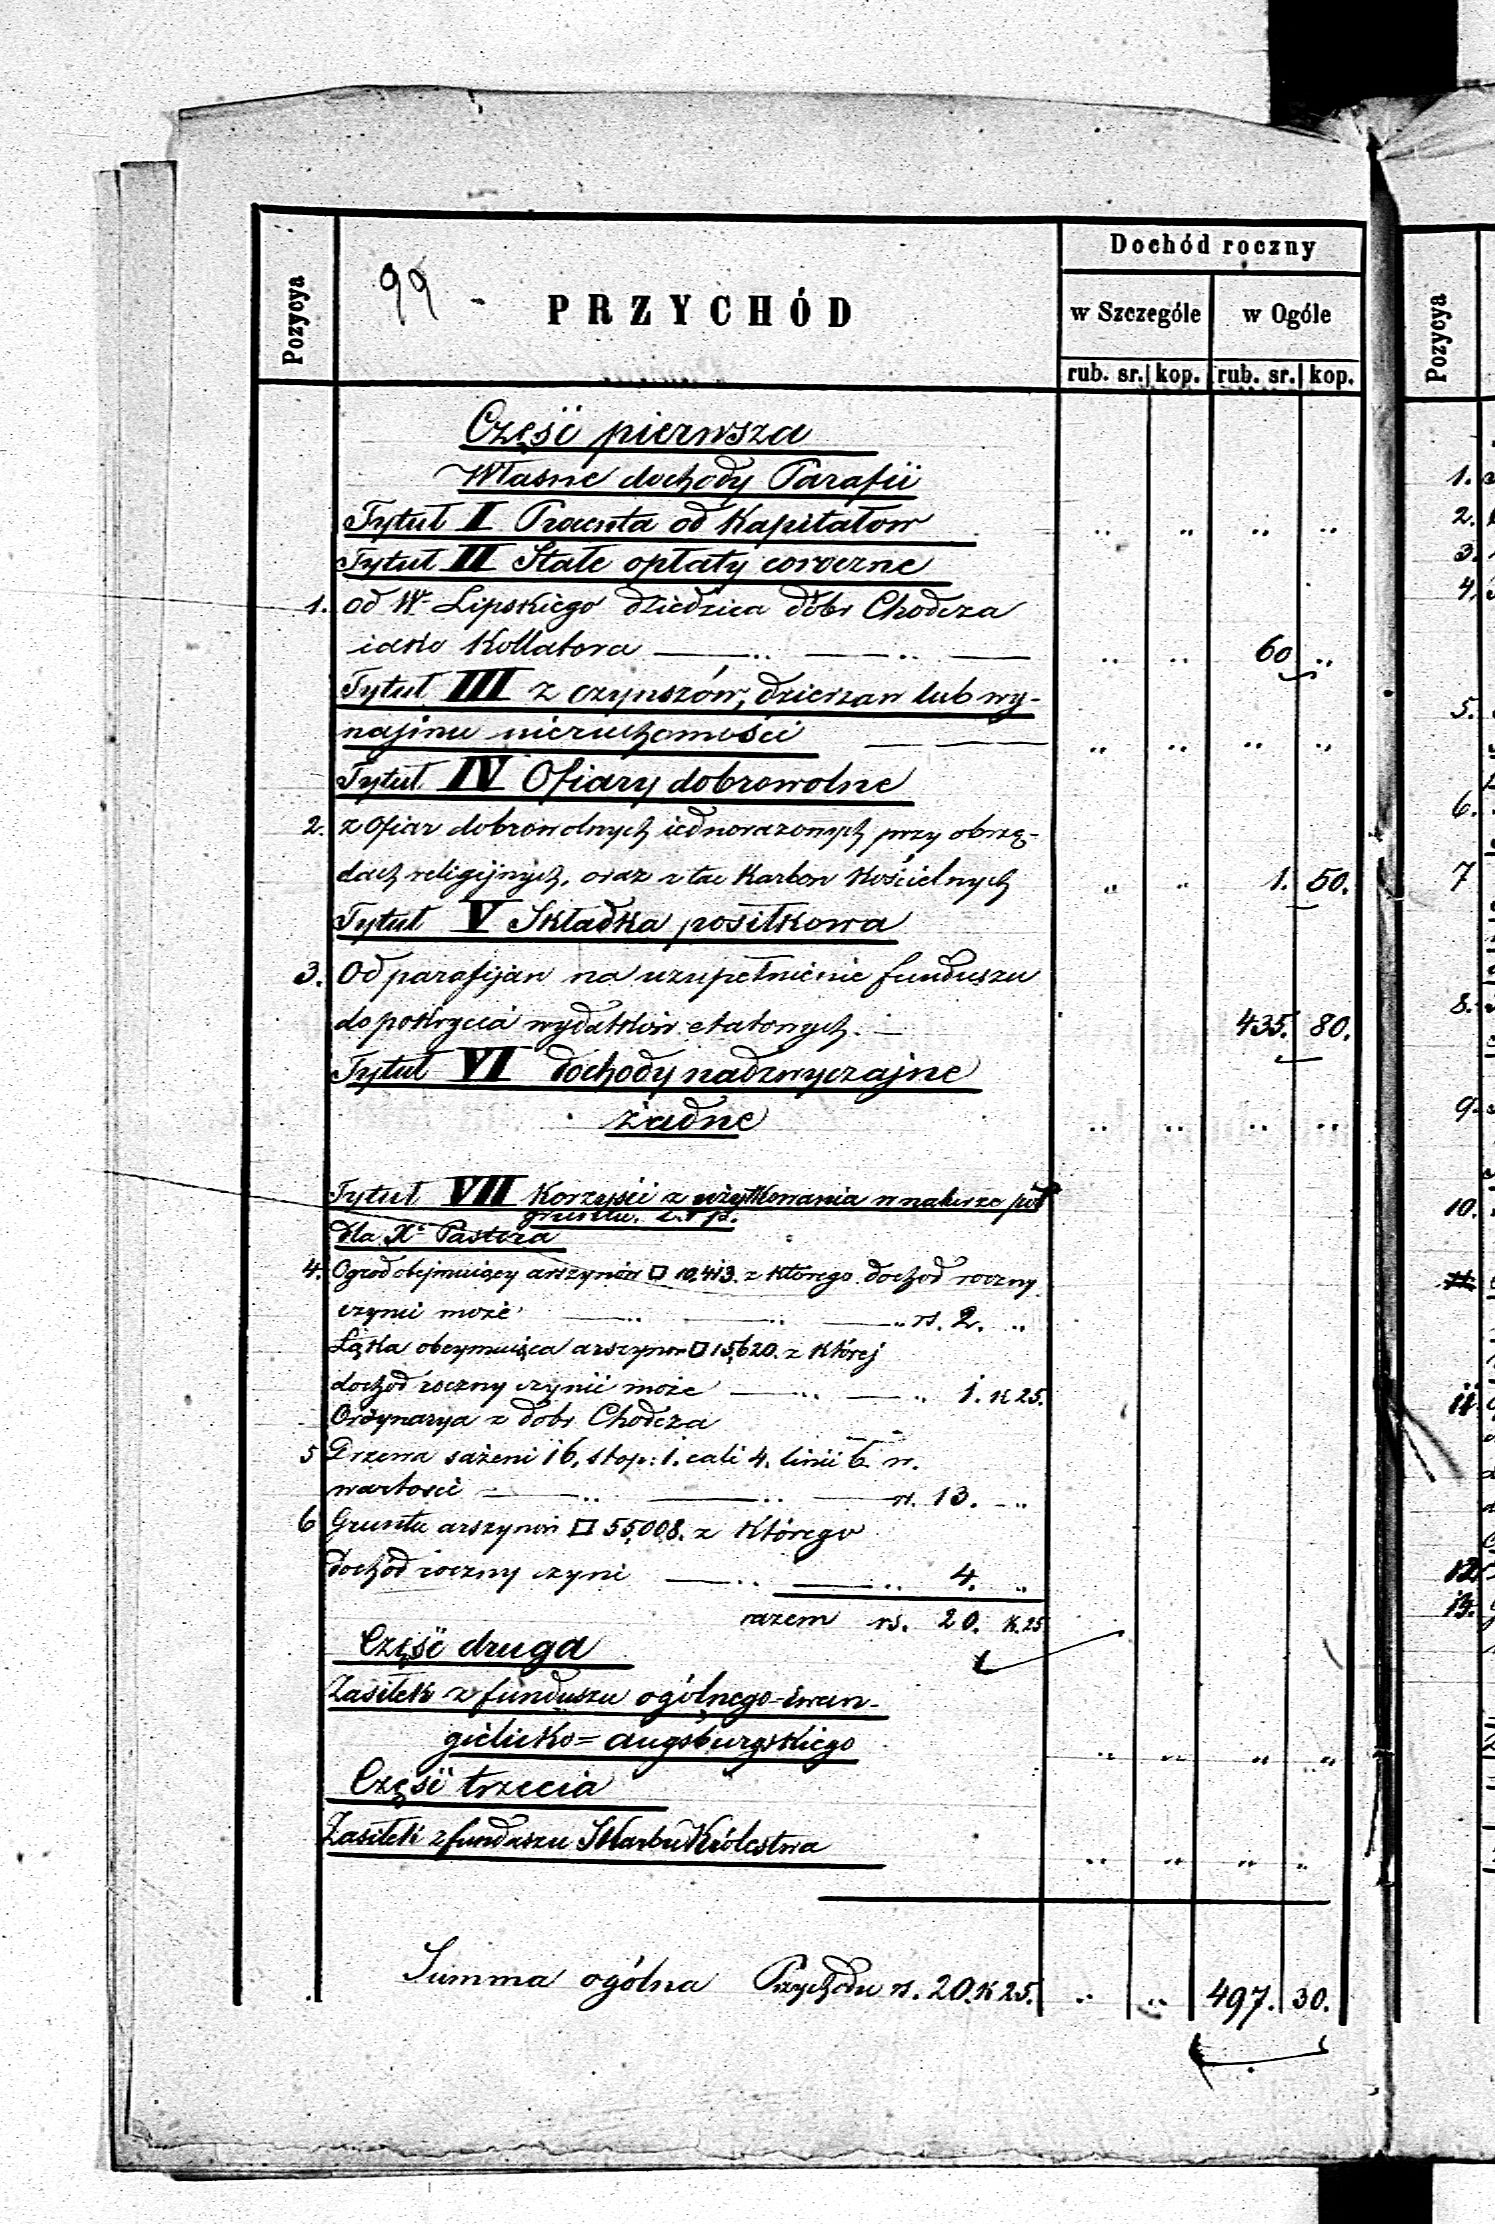 Pozycya
99
PRZYCHÓD
Dochód roczny
w Szczególe
w Ogóle
rub. sr. kop. rub. sr. kop.
Pozycya
Część pierwsza
Własne dochody Parafii
Tytuł I Procenta od Kapitałow " " " "
Tytuł II Stałe opłaty coroczne
1. od W Lipskiego dziedzica dóbr Chodcza
iako Kollatora — " — " — " " 60 "
Tytuł III z czynszów, dzierzaw lub wy-
najmu nieruchomości — — " " " "
Tytuł IV Ofiary dobrowolne
2. z ofiar dobrowolnych iednorazowych przy obrzę-
dach religijnych, oraz z tac Karbon Kościelnych " " 1. 50.
Tytuł V Składka posiłkowa
3. Od parafijan na uzupełnienie funduszu
do pokrycia wydatków etatowych. — 435. 80.
Tytuł VI dochody nadzwyczajne
żadne " " " "
Tytuł VII Korzyści z użytkowania w naturze pod
gruntu. i.t.p.
dla X. Pastora
4. Ogrod obejmuiący arszynów □ 10,413. z którego dochod roczny
czynić może — " — " — " rs. 2. "
Łąka obeymuiąca arszynow □ 15,620. z której
dochod roczny czynić może — " — " 1. K 25.
Ordynarya z dobr Chodcza
5 Drzewa sażeni 16, stop: 1. cali 4. linii 6 w.
wartości — " — " — rs. 13. "
6 Gruntu arszynow □ 55,008. z którego
dochód roczny czyni — " — " 4. "
razem rs. 20. K. 25
Część druga
Zasiłek z funduszu ogólnego-Ewan-
gielicko=augsburgskiego " " " "
Część trzecia
Zasiłek z funduszu Skarbu Królestwa " " " "
Summa ogólna Przychodu rs. 20. K 25. " " 497. 30.
1.
2.
3.
4.
5.
6.
7
8.
9.
10.
11.
12.
13.